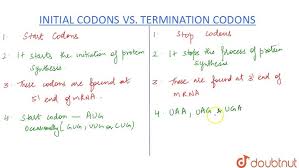 INITIAL CODONS VS. TERMINATION CODONS
1. Start Codons
2. It starts the initiation of protein
synthesis
3. These codons are found at
5' end of mRNA.
4. Start codon — AUG
Occasionally (GUG, UUG or CUG)
1. Stop Codons
2. It stops the process of protein
synthesis
3. These are found at 3' end of
mRNA
4. UAA, UAG & UGA
doubtnut